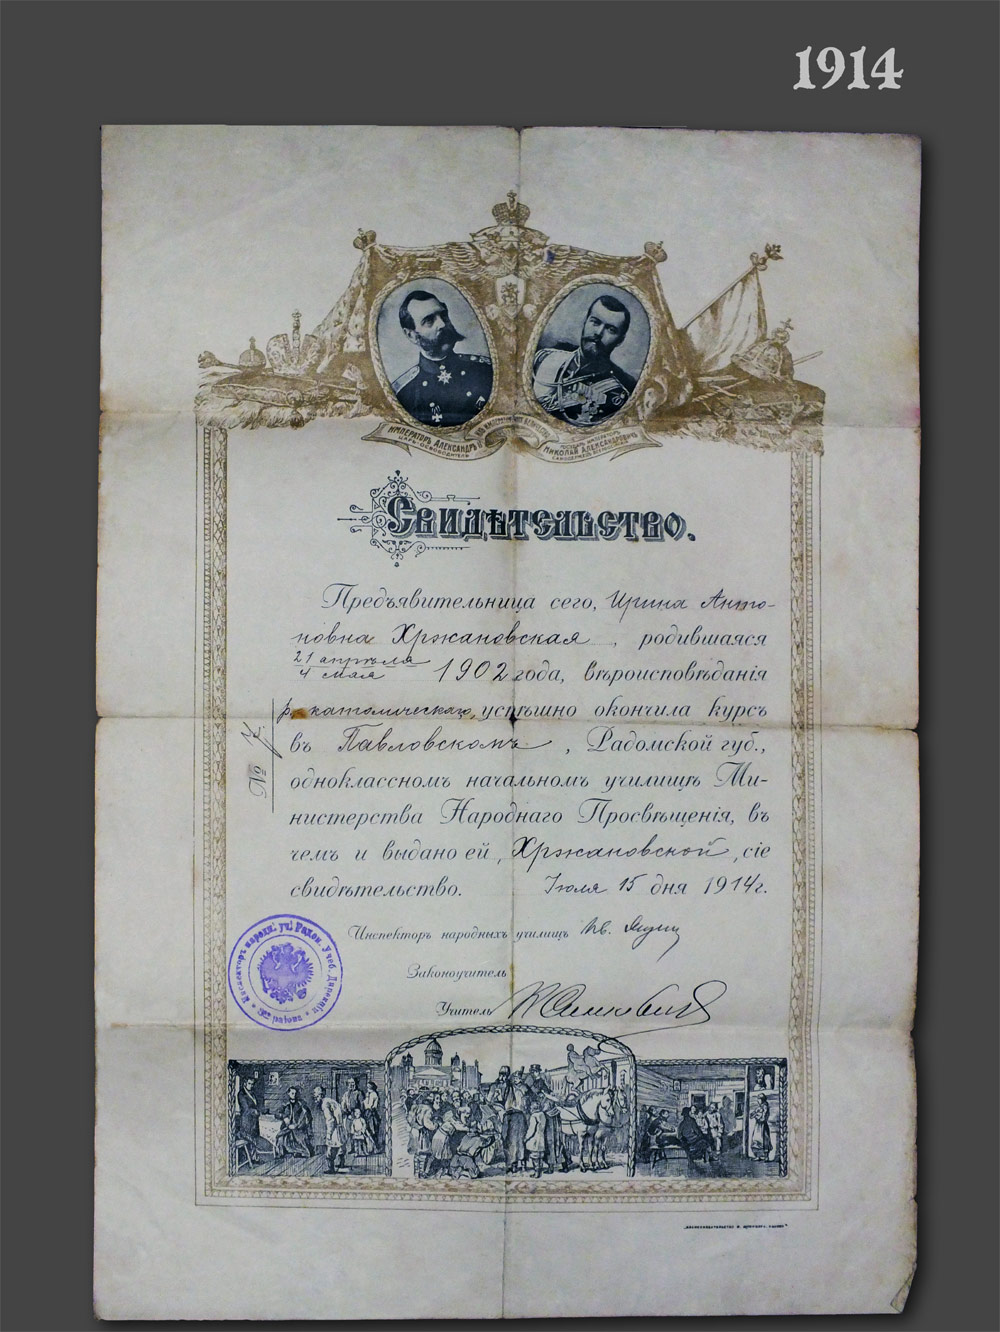 1914
ИМПЕРАТОРЪ АЛЕКСАНДРЪ
ЦАРЬ-ОСВОБОДИТЕЛЬ
НИКОЛАЙ АЛЕКСАНДРОВИЧЪ
Свидѣтельство.
Предъявительница сего, Ирина Анто-
новна Хржановская, родившаяся
21 апрѣля
4 мая 1902 года, вѣроисповѣданія
р. католическаго, успѣшно окончила курсъ
въ Павловскомъ, Радомской губ.,
одноклассномъ начальномъ училищѣ Ми-
нистерства Народнаго Просвѣщенія, въ
чемъ и выдано ей, Хржановской, сіе
свидѣтельство. Іюля 15 дня 1914 г.
№ 7.
Инспекторъ народныхъ училищъ
Законоучитель
Учитель
Инспекторъ народн. уч. Радом. Учеб. Дирекціи